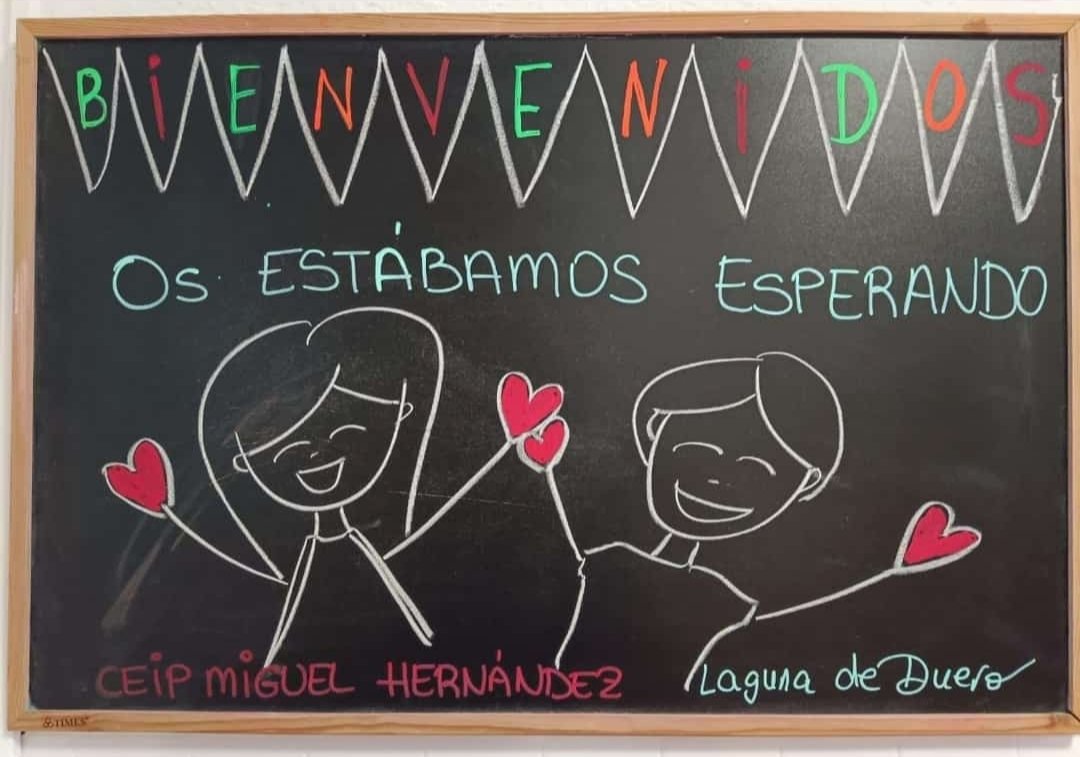 BiENVENiDOS
Os ESTÁBAMOS ESPERANDO
CEiP MiGUEL HERNÁNDEZ
Laguna de Duero
TIMES